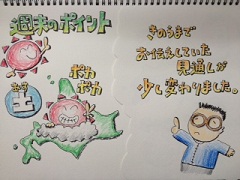 週末のポイント
あす
土
ポカ
ポカ
きのうまで
お伝えしていた
見通しが
少し変わりました。